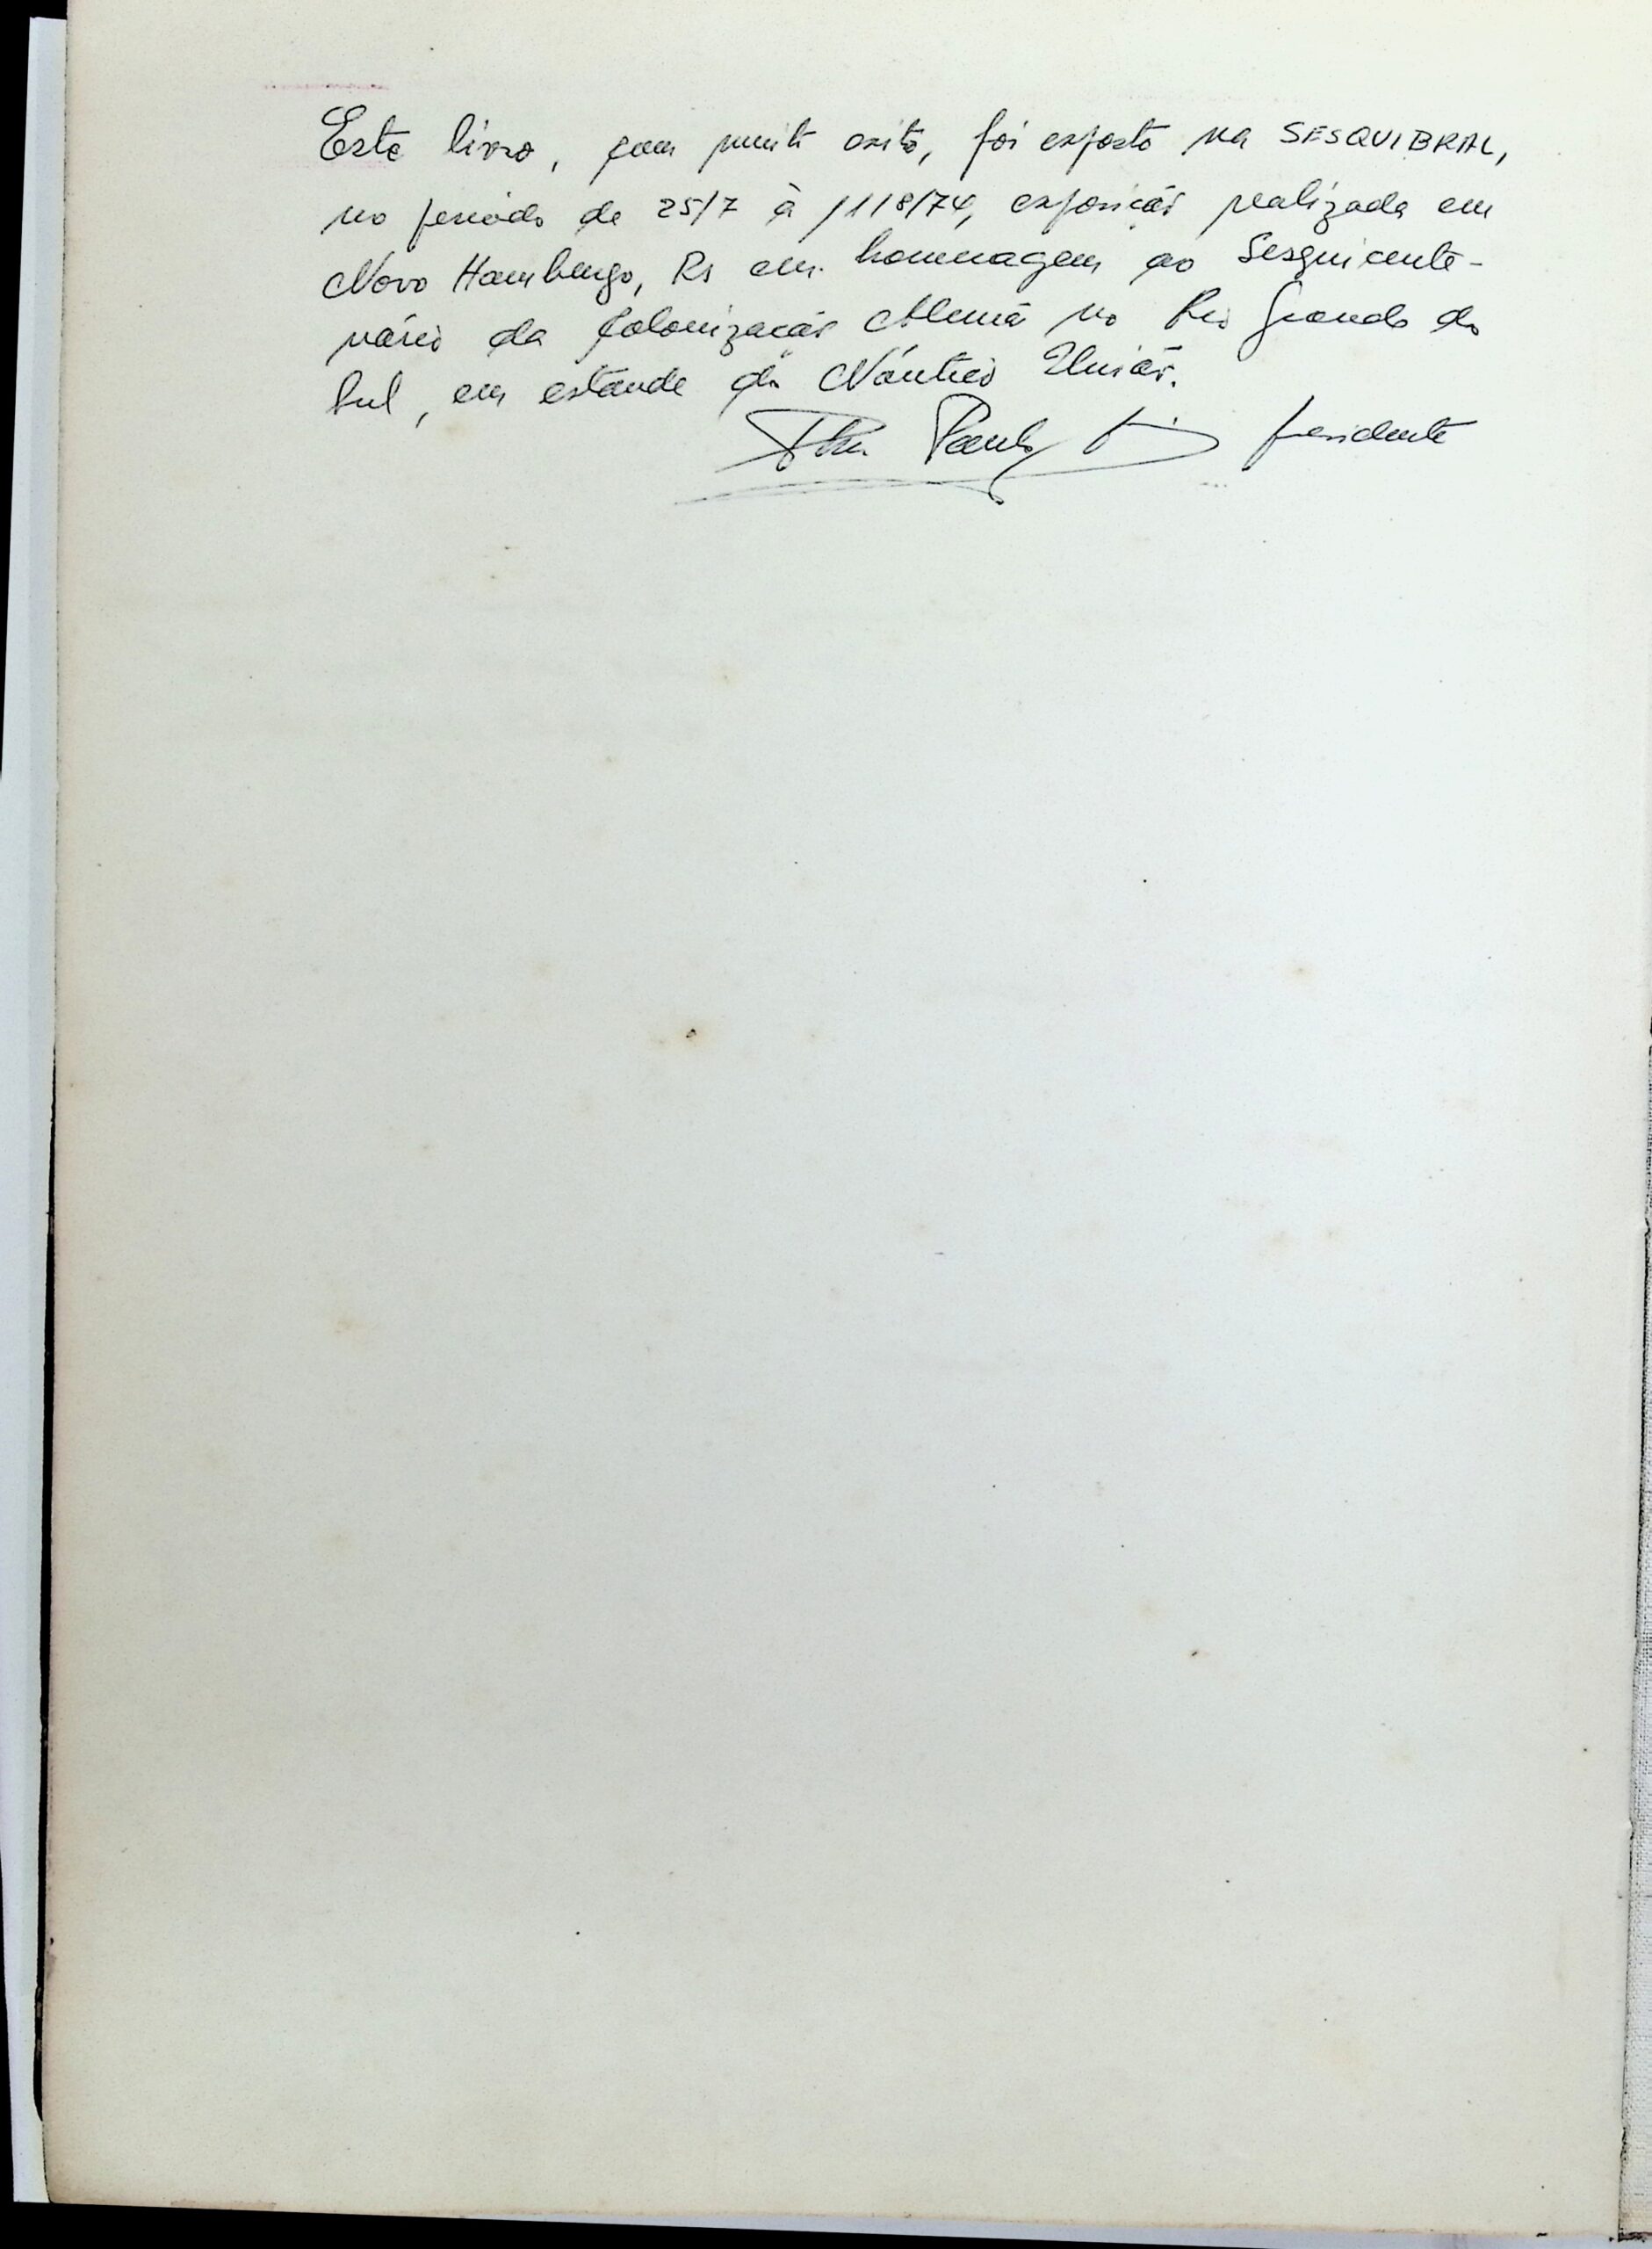 Este livro, com muito exito, foi exposto na SESQUIBRAL,
no periodo de 25/7 à 11/8/74, exposição realizada em
Novo Hamburgo, Rs em homenagem ao Sesquicente-
nário da Colonização Alemã no Rio Grande do
Sul, em estande do Náutico União.
Paulo presidente